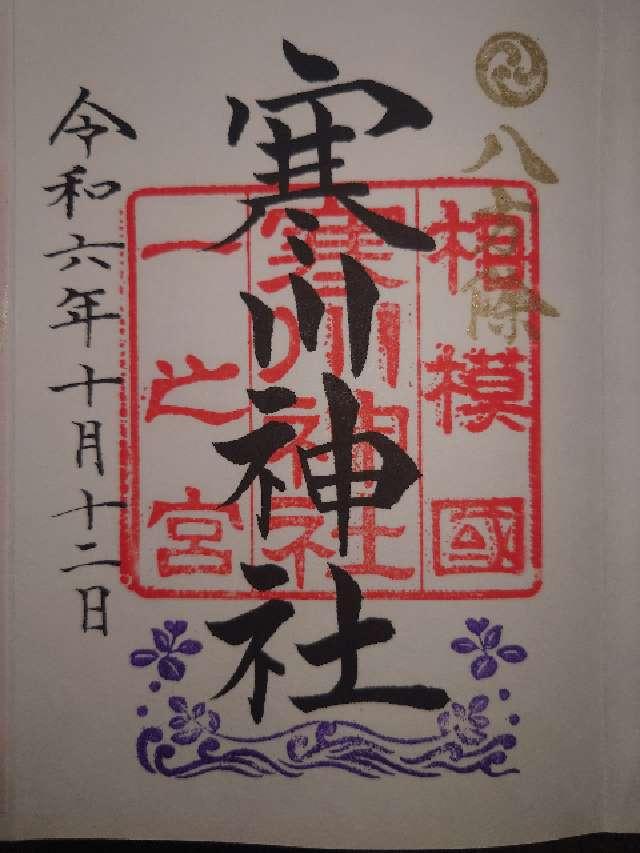 八方除
相模國
寒川神社
一之宮
寒川神社
令和六年十月十二日